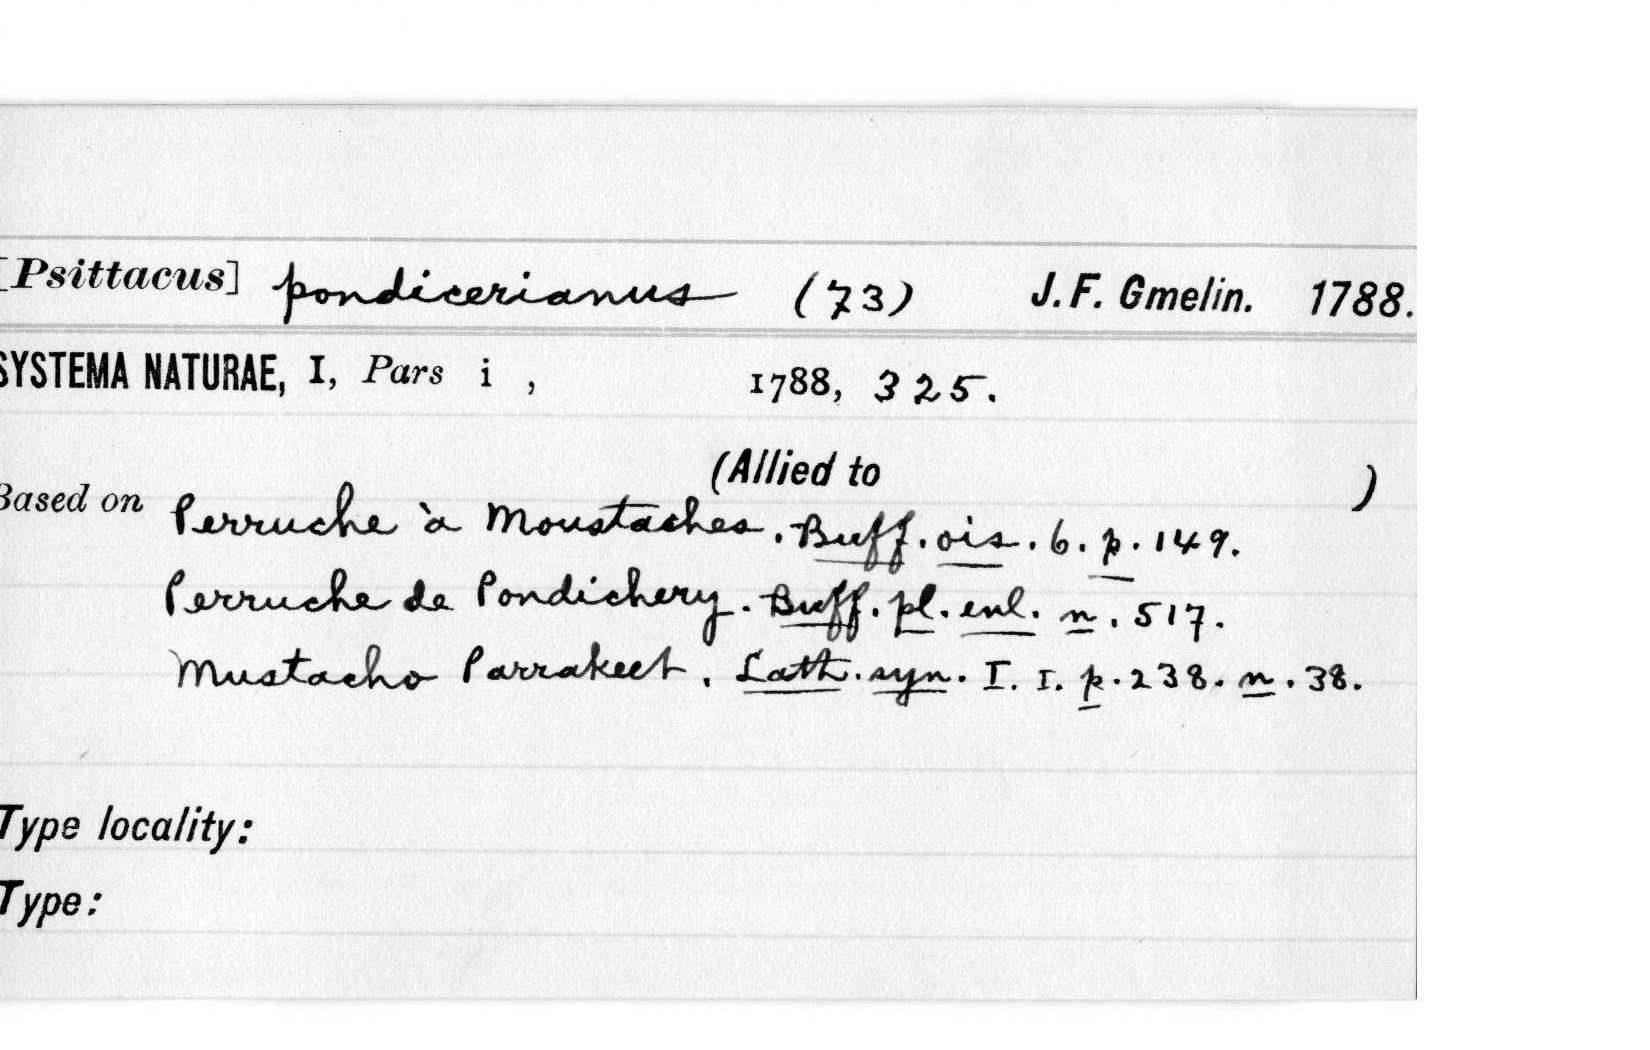 [Psittacus] pondicerianus (73) J. F. Gmelin. 1788.
SYSTEMA NATURAE, I, Pars i , 1788, 325.
(Allied to )
Based on Perruche à Moustaches. Buff. ois. 6. p. 149.
Perruche de Pondichery. Buff. pl. enl. n. 517.
Mustacho Parrakeet. Lath. syn. I. I. p. 238. n. 38.
Type locality:
Type: